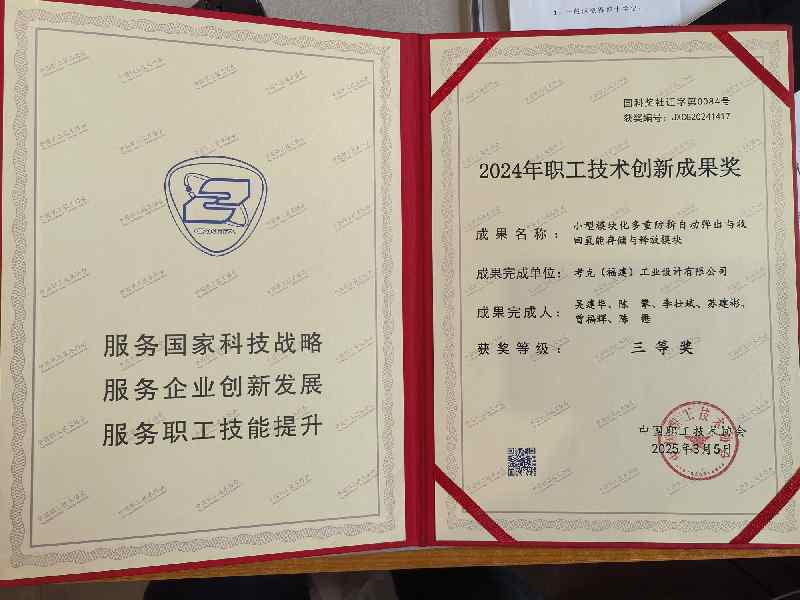 服务国家科技战略
服务企业创新发展
服务职工技能提升
国科奖社证字第0084号
获奖编号：JXDE20241417
2024年职工技术创新成果奖
成果名称：小型模块化多重防拆自动弹出与收
回氢能存储与释放模块
成果完成单位：考克（福建）工业设计有限公司
成果完成人：吴建华、陈 、李壮斌、苏建彬、
曾福辉、陈
获奖等级：三等奖
中国职工技术协会
2025年3月5日